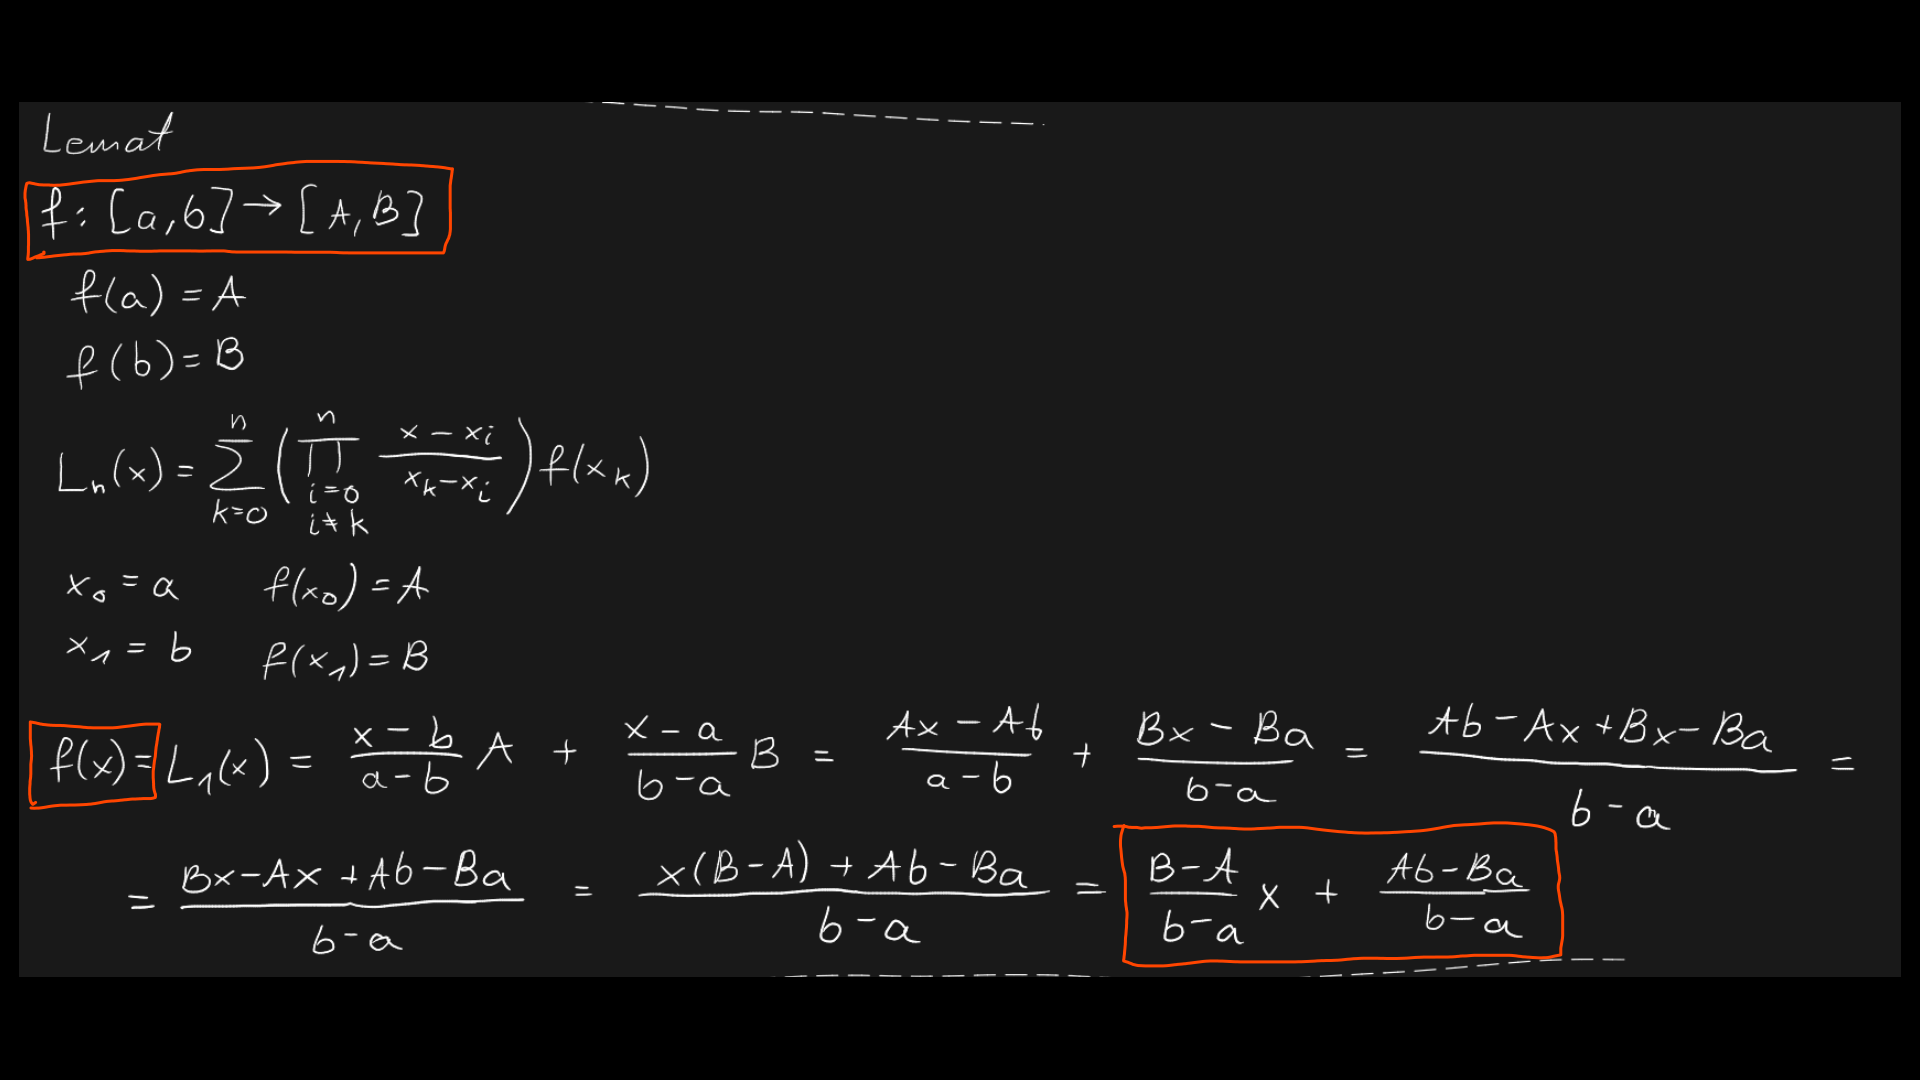 Lemat
f: [a,b] → [A,B]
f(a) = A
f(b) = B
Lₙ(x) = ∑_{k=0}^{n} ( ∏_{i=0, i≠k}^{n} \frac{x - x_i}{x_k - x_i} ) f(x_k)
x₀ = a f(x₀) = A
x₁ = b f(x₁) = B
f(x) = L₁(x) = \frac{x-b}{a-b} A + \frac{x-a}{b-a} B = \frac{Ax - Ab}{a-b} + \frac{Bx - Ba}{b-a} = \frac{Ab - Ax + Bx - Ba}{b-a} =
= \frac{Bx - Ax + Ab - Ba}{b-a} = \frac{x(B-A) + Ab - Ba}{b-a} = \frac{B-A}{b-a} x + \frac{Ab - Ba}{b-a}